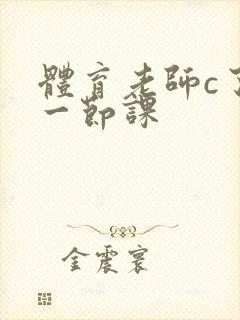 體育老師c了
一節課
金震寰